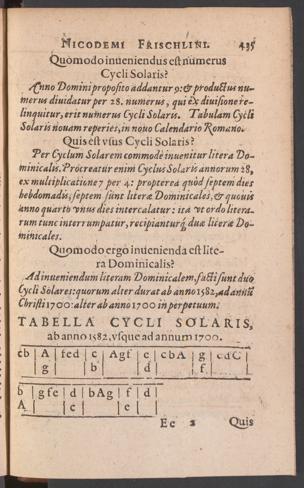 NICODEMI FRISCHLINI. 435
Quomodo inueniendus est numerus
Cycli Solaris?
Anno Domini proposito addantur 9: & productus nu-
merus diuidatur per 28. numerus, qui ex diuisione re-
linquitur, erit numerus Cycli Solaris. Tabulam Cycli
Solaris nouam reperies, in nouo Calendario Romano.
Quis est vsus Cycli Solaris?
Per Cyclum Solarem commodè inuenitur litera Do-
minicalis. Procreatur enim Cyclus Solaris annorum 28,
ex multiplicatione 7 per 4: propterea quòd septem dies
hebdomadis, septem sunt literæ Dominicales, & quouis
anno quarto vnus dies intercalatur: ita vt ordo litera-
rum tunc interrumpatur, recipianturq; duæ literæ Do-
minicales.
Quomodo ergò inuenienda est lite-
ra Dominicalis?
Ad inueniendum literam Dominicalem, facti sunt duo
Cycli Solares: quorum alter durat ab anno 1582, ad annũ
Christi 1700: alter ab anno 1700 in perpetuum.
TABELLA CYCLI SOLARIS,
ab anno 1582, vsque ad annum 1700.
cb | A | fed | c | Agf | e | cbA | g | edC |
g | b | d | f. |
b | gfe | d | bAg | f | d |
A | c | e |
Ee 2 Quis